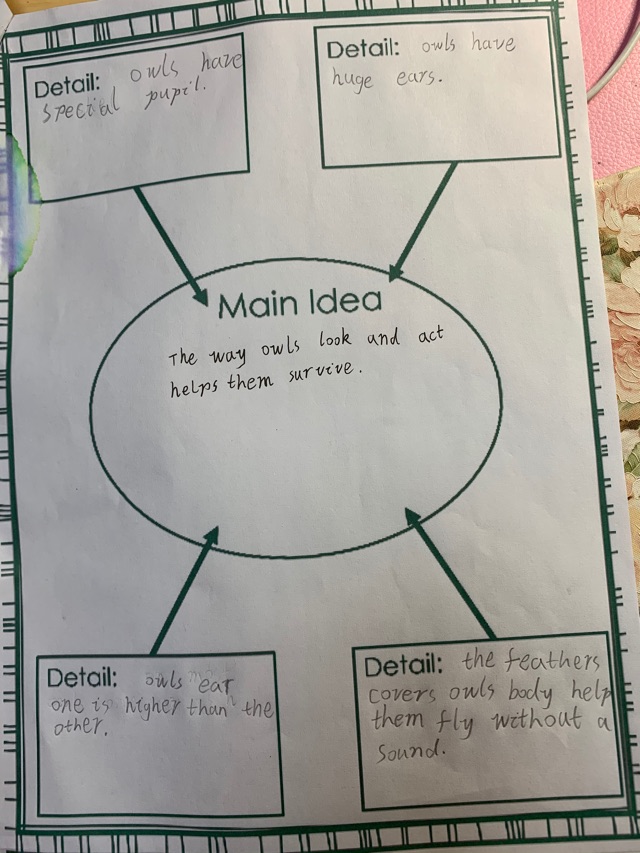 Detail: owls have
special pupil.
Detail: owls have
huge ears.
Main Idea
The way owls look and act
helps them survive.
Detail: owls ear
one is higher than the
other.
Detail: the feathers
covers owls body help
them fly without a
sound.